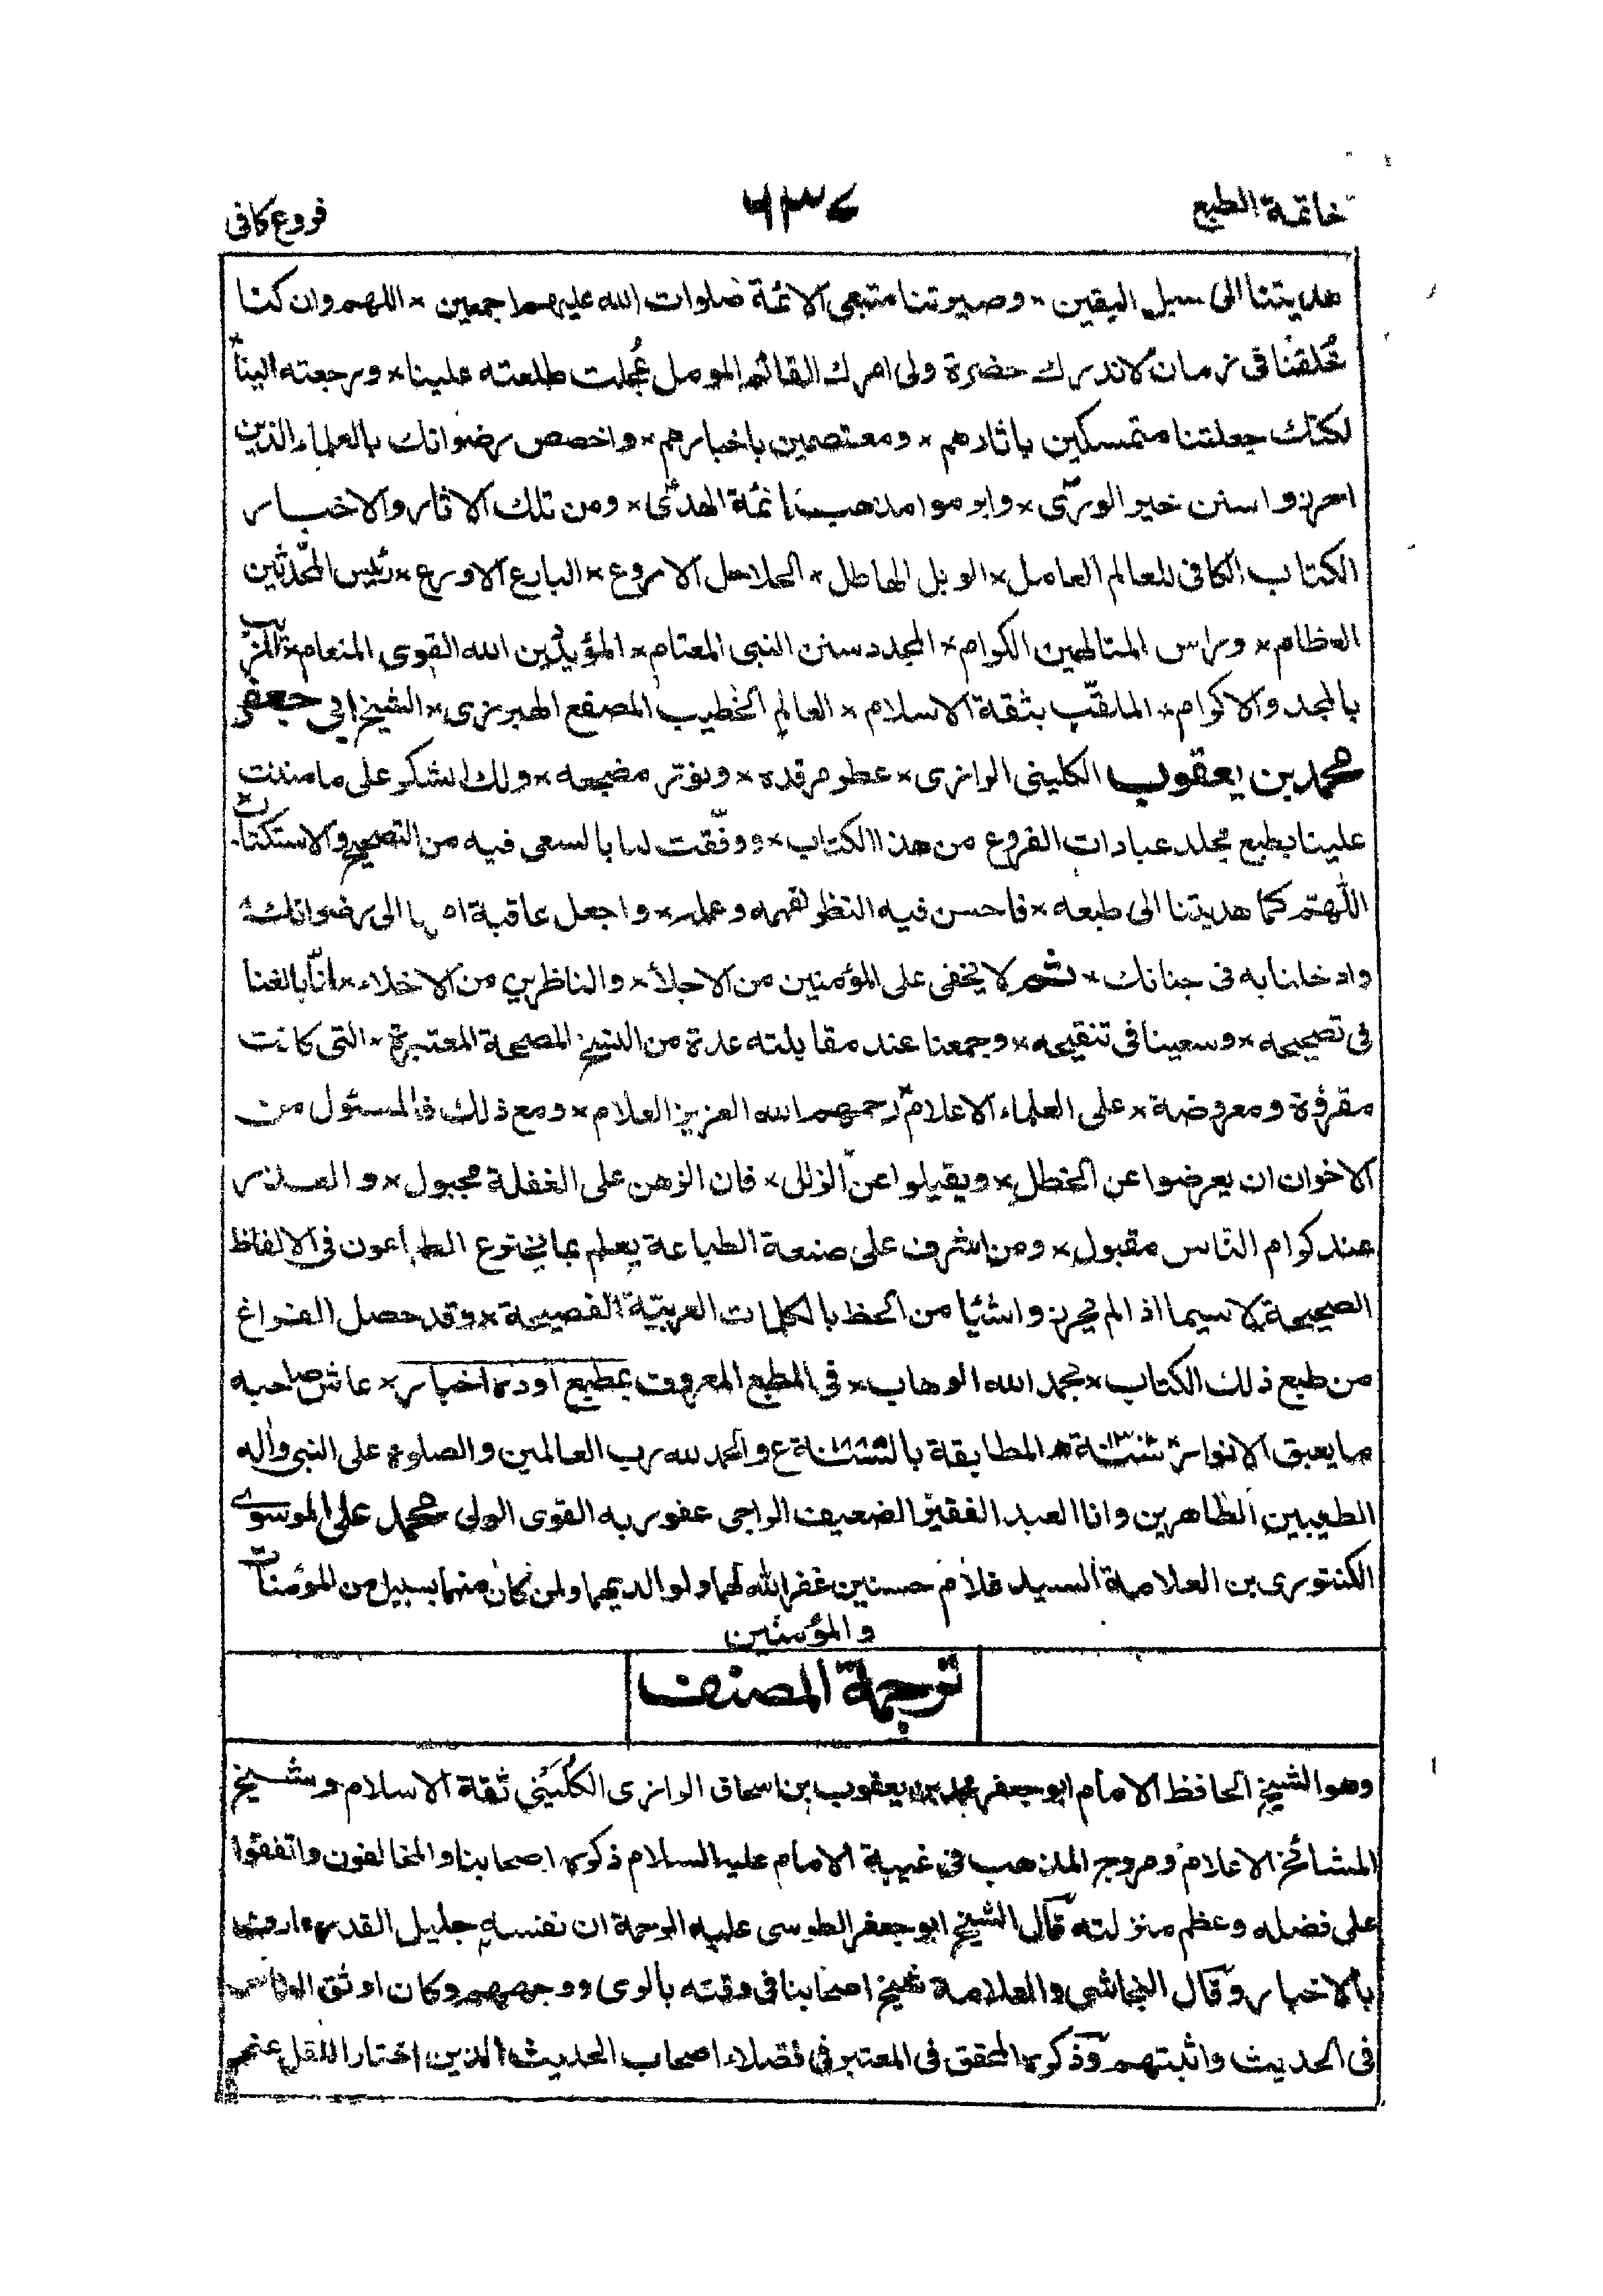 خاتمة الطبع ٦٣٤ فروع كافى
هديتنا الى سبيل اليقين × وصيرتنا متبعى الائمة صلوات الله عليهم اجمعين × اللهم وان كنا
خُلقنا فى زمان لاندرك حضرة ولى امرك القائم المومل عُجلت طلعته علينا × ورجعته الينا ×
لكنك جعلتنا متمسكين باثارهم × ومعتصمين باخبارهم × واخصص رضوانك بالعلماء الذين
احرزوا سنن خير الورىٰ × وابرموا مذهب ائمة الهدىٰ × ومن تلك الاثار والاخبار
الكتاب الكافى للعالم العامل × الوبل الهاطل × الحلاحل الاروع × البارع الاورع × رئيس المحّدثين
العظام × وراس المتالهين الكرام × المجدد سنن النبى المعتام × المؤيّد بن الله القوى المنعام ×
بالمجد والاكرام × الملقّب بثقة الاسلام × العالم الخطيب المصقع الهبرزى × الشيخ ابي جعفر
محمد بن يعقوب الكلينى الرازى × عطر مرقده × ونوّر مضجعه × ولك الشكر على ما مننت
علينا بطبع مجلد عبادات الفروع من هذا الكتاب × ووفّقت لنا بالسعى فيه من التصحيح والاستكتاب ×
اللّهمّ كما هديتنا الى طبعه × فاحسن فيه النظر لفهمه وعمله × واجعل عاقبة الى رضوانك
وادخلنا به فى جنانك × ثم لا يخفى على المؤمنين من الاجلأ × والناظرين من الاخلاء × انّا بالغنا
فى تصحيحه × وسعينا فى تنقيحه × وجمعنا عند مقابلته عدة من النسخ المصححة المعتبرة × التى كانت
مقرؤة ومعروضة × على العلماء الاعلام × رحمهم الله العزيز العلام × ومع ذلك فالمسئول من
الاخوان ان يعرضوا عن الخطل × ويقيلوا عن الزلل × فان الزهن على الغفلة مجبول × والعذر
عند كرام النّاس مقبول × ومن اشرف على صنعة الطباعة يعلم بما يخترع الطباعون فى الالفاظ
الصحيحة لا سيما اذا لم يحرزوا شيًا من الحظ بالكلمات العربيّة الفصيحة × وقد حصل الفراغ
من طبع ذلك الكتاب × بحمد الله الوهاب × فى المطبع المعروف بمطبع اودہ اخبار × عاش صاحبه
ما يعبق الانوار × سنة ١٣٠٢ ه المطابقة بالسنة ١٨٨٥ ع والحمد لله رب العالمين والصلوة على النبى وآله
الطيبين الطاهرين وانا العبد الفقير الضعيف الراجى عفو ربه القوى الولى محمد على الموسوى
الكنتورى بن العلامة السيد غلام حسنين غفر الله لهما ولوالديهما ولمن كان منهما بسبيل من المؤمنات
والمؤمنين
ترجمة المصنف
وهو الشيخ الحافظ الامام ابو جعفر محمد بن يعقوب بن اسحاق الرازى الكُلَيْنِي ثقة الاسلام وشيخ
المشائخ الاعلام ومروج المذهب فى غيبة الامام عليه السلام ذكره اصحابنا والمخالفون واتفقوا
على فضله وعظم منزلته قال الشيخ ابو جعفر الطوسى عليه الرحمة ان نفسه جليل القدر عارف
بالاخبار وقال النجاشى والعلامة شيخ اصحابنا فى وقته بالرى ووجههم وكان اوثق الناس
فى الحديث واثبتهم وذكره المحقق فى المعتبر فى فضلاء اصحاب الحديث الذين اختار النقل عنهم